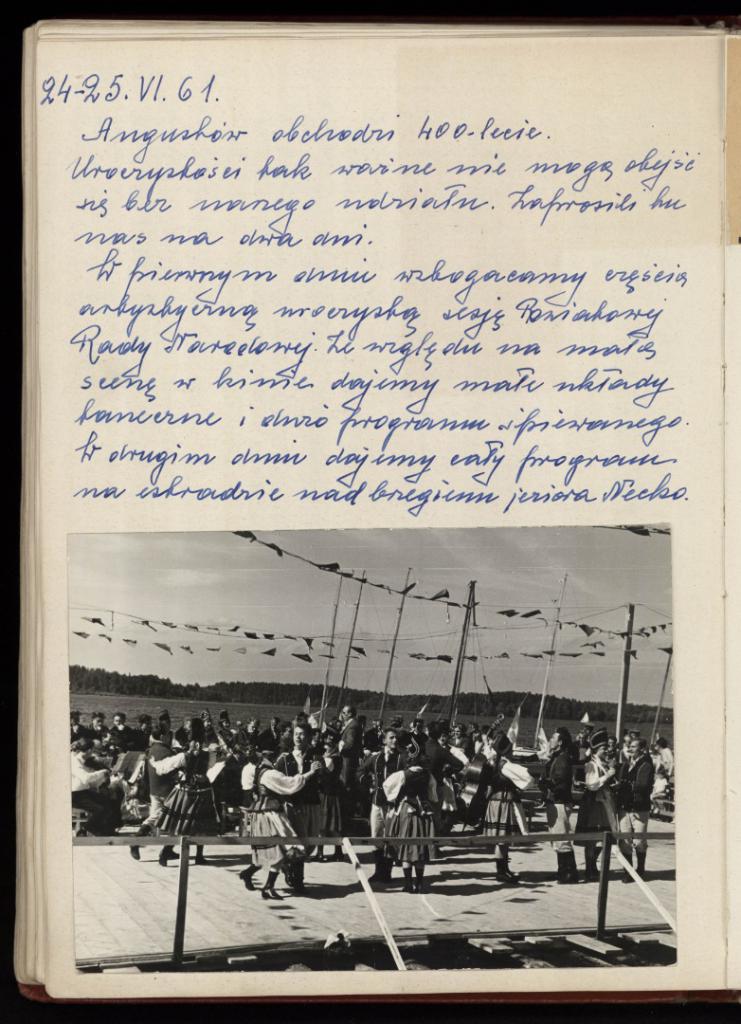 24-25.VI.61.
Augustów obchodzi 400-lecie.
Uroczystości tak ważne nie mogą obejść
się bez naszego udziału. Zaprosili tu
nas na dwa dni.
W pierwszym dniu wzbogacamy częścią
artystyczną uroczystą sesję Powiatowej
Rady Narodowej. Ze względu na małą
scenę w kinie dajemy małe układy
taneczne i dużo programu śpiewanego.
W drugim dniu dajemy cały program
na estradzie nad brzegiem jeziora Necko.